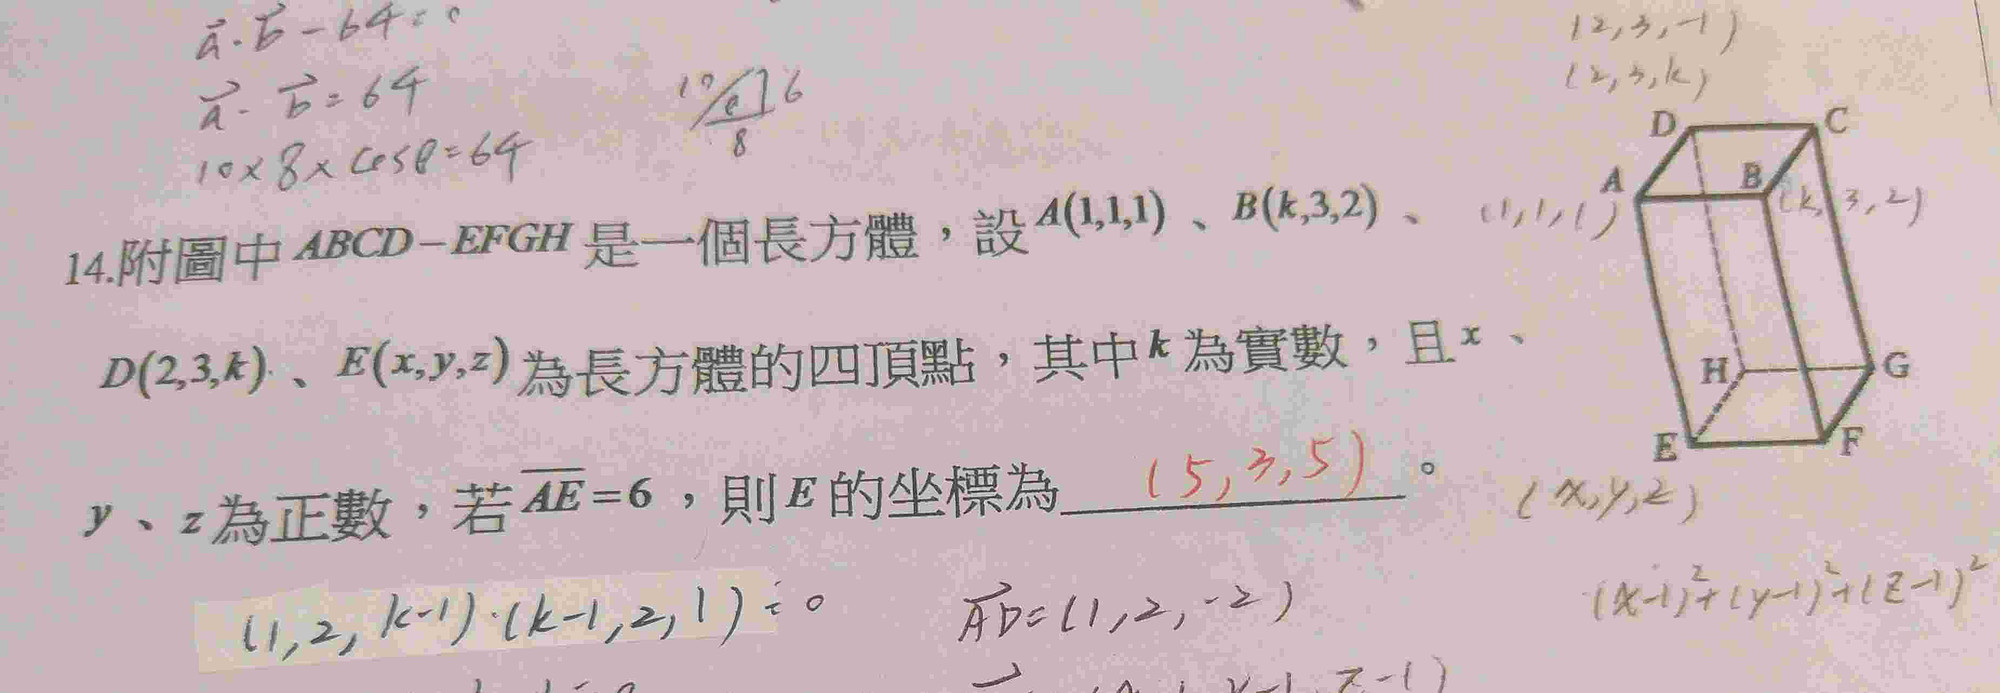 a⃗·b⃗-64=0
a⃗·b⃗=64
10×8×cosθ=64
10 6
8
(2,3,-1)
(2,3,k)
D C
A B
(1,1,1) (k,3,2)
14.附圖中 ABCD-EFGH 是一個長方體，設 A(1,1,1)、B(k,3,2)、
D(2,3,k)、E(x,y,z)為長方體的四頂點，其中 k 為實數，且 x、
y、z 為正數，若 \overline{AE}=6，則 E 的坐標為 (5,3,5)。
H G
E F
(x,y,z)
(1,2,k-1)·(k-1,2,1)=0
AD⃗=(1,2,-2)
(x-1)²+(y-1)²+(z-1)²